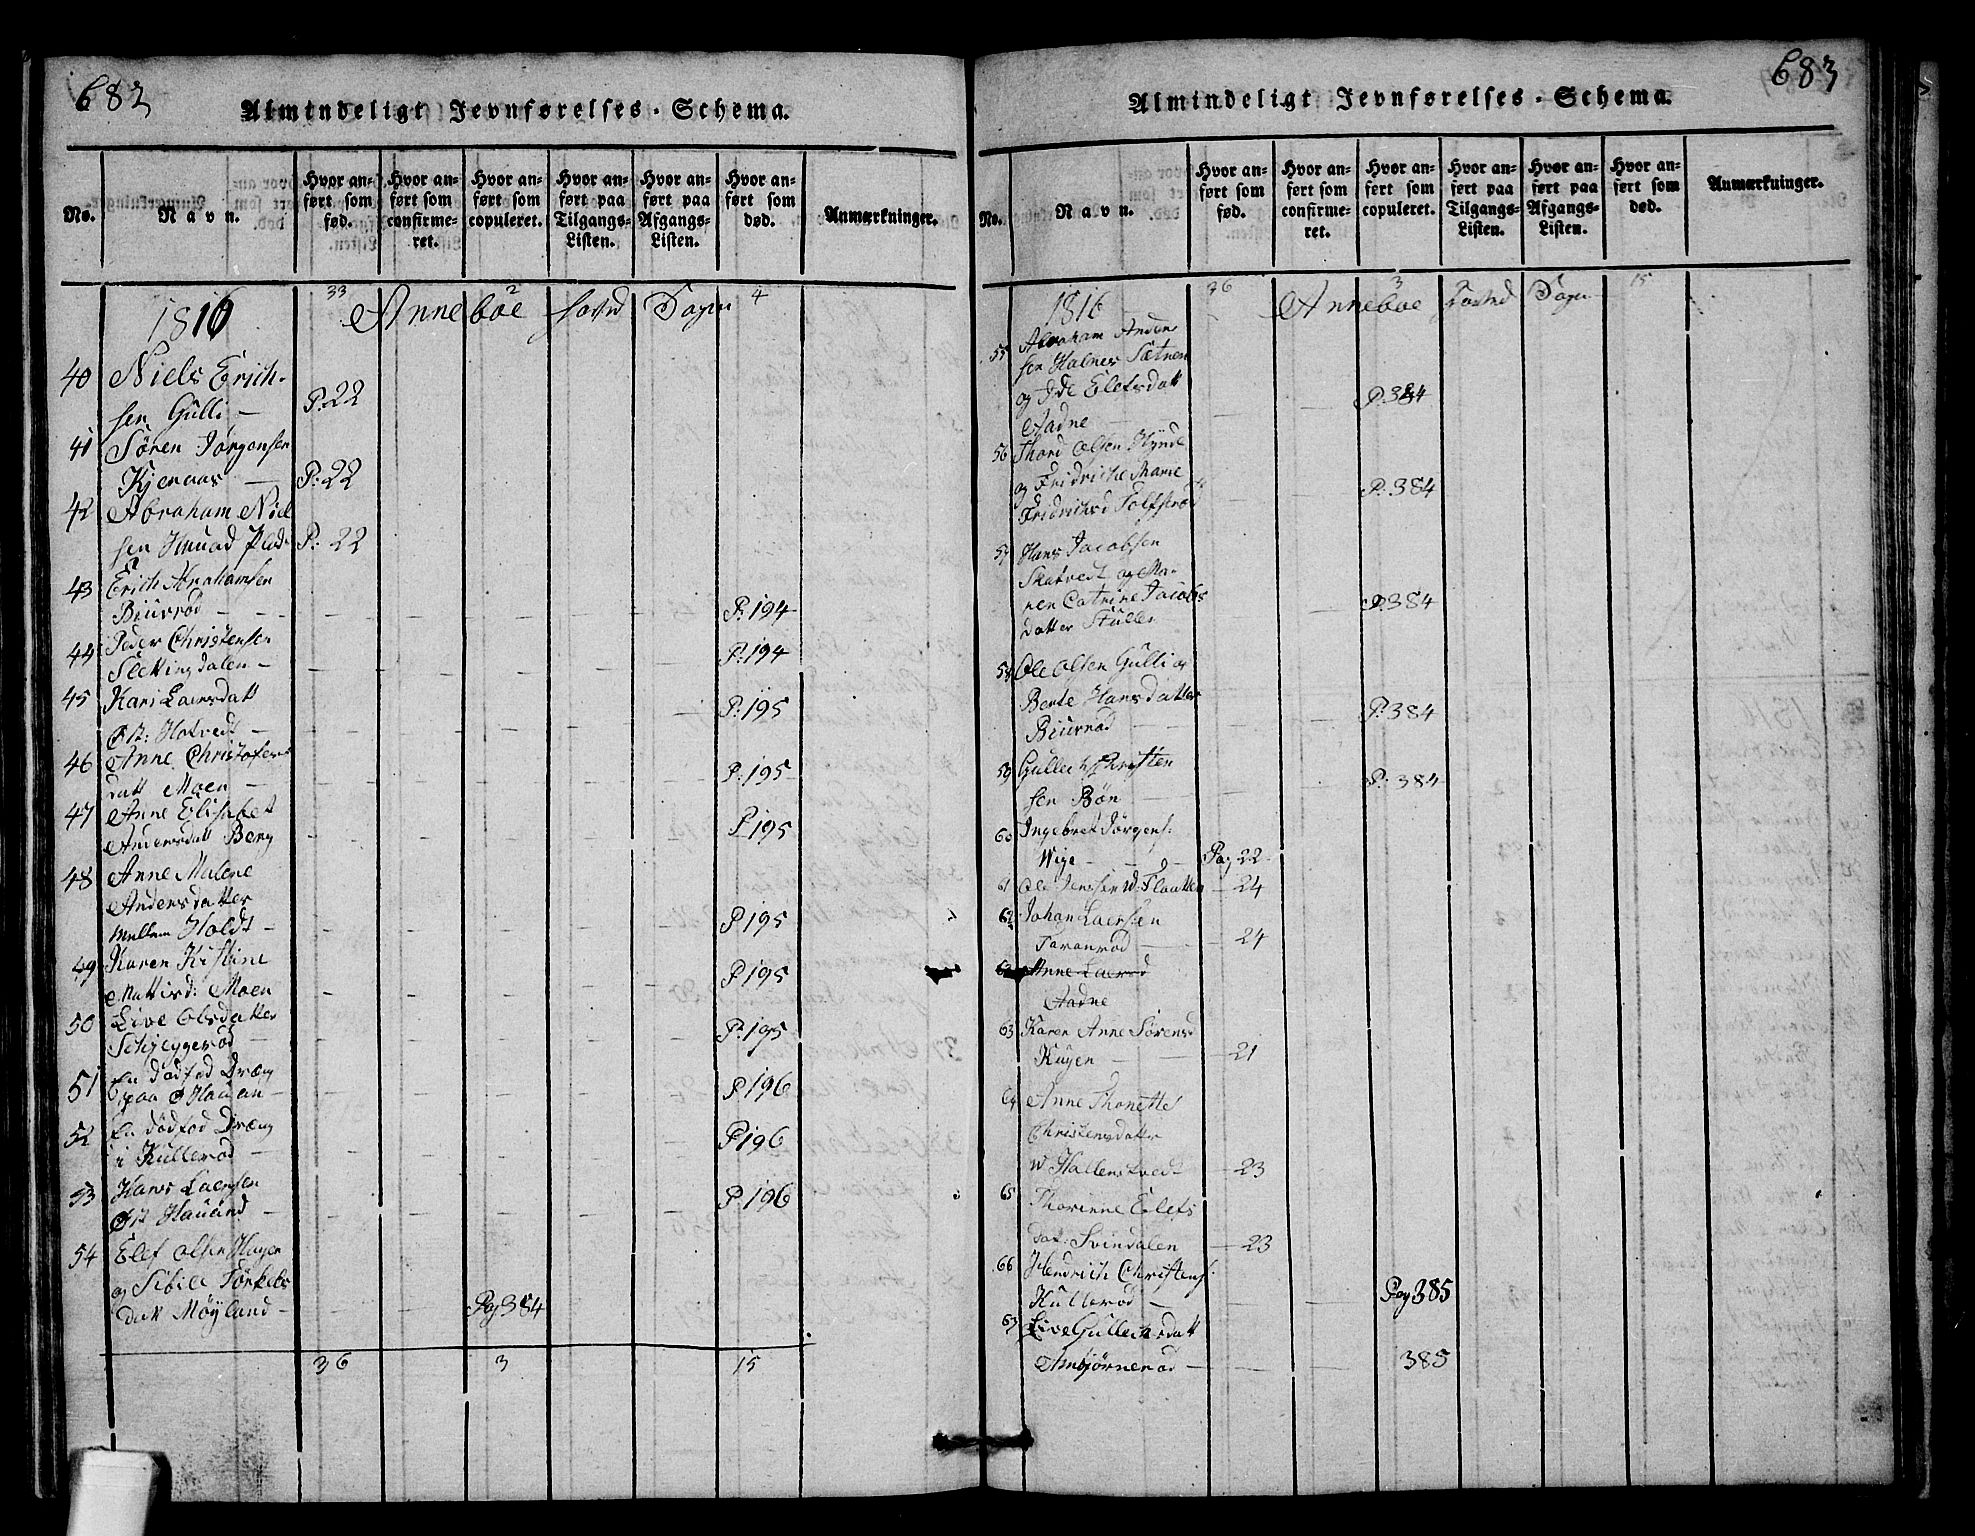 682
Almindeligt Jevnførelses-Schema.
No.
Navn.
Hvor an-
ført som
fød.
Hvor an-
ført som
confirme-
ret.
Hvor an-
ført som
copuleret.
Hvor an-
ført paa
Tilgangs-
Listen.
Hvor an-
ført paa
Afgangs-
Listen.
Hvor an-
ført som
død.
Anmærkninger.
33 2 4
1816 Anneboe Hoved Sogn
40 Niels Erich-
sen Gulli - P: 22
41 Sören Jörgensen
Kjernaas - P: 22
42 Abraham Niel
sen P: 22
43 Erich Abrahamsen
Biurrød - P: 194
44 Peder Christensen
Slettingdalen - P: 194
45 Kari Laersdatt
Øst: Hotvedt - P: 195
46 Anne Christofers
datt Moen - P: 195
47 Anne Elisabet
Andersdatt Berg P 195
48 Anne Malene
Andersdatter
Mellem Holdt - P 195
49 Karen Kistine
Mattisd: Moen P 195
50 Live Olsdatter
Schjeggerød P: 195
51 En dødfød Dræng
paa P 196
52 En dödfød Dræng
i Kullerød - P 196
53 Hans Laersen
Øst Hauand - P 196
54 Elef Olsen Hagen
og Sibile Törkels
datt Möyland - Pag 384
36 3 15
683
Almindeligt Jevnførelses-Schema.
No.
Navn.
Hvor an-
ført som
fød.
Hvor an-
ført som
confirme-
ret.
Hvor an-
ført som
copuleret.
Hvor an-
ført paa
Tilgangs-
Listen.
Hvor an-
ført paa
Afgangs-
Listen.
Hvor an-
ført som
død.
Anmærkninger.
36 3 15
1816 Anneboe Hoved Sogn
55 Abraham Anders
sen Halnes Sætner
og Ide Elefsdatt
Aadne P: 384
56 Thord Olsen
og Fridriche Marie
Fridrichsd P: 384
57 Hans Jacobsen
Skatvedt og Ma-
ren Catrine Jacobs
datter Stullen P: 384
58 Ole Olsen Gulli og
Berte Hansdatter
Biurrød P: 384
59 Gullech Christen
sen Bön P: 384
60 Ingebret Jörgens:
Wige - Pag 22
61 Ole Jenssen W: Flaatten - 24
62 Johan Laersen
Taranrød - 24
63 Anne Laersd
Aadne
63 Karen Anne Sörensd
Kuyen - 21
64 Anne Thonette
Christensdatter
W Hallenstvedt - 23
65 Thorinne Elefs
dat: Svindalen - 23
66 Hendrich Christens:
Kullerød - Pag 385
67 Live Gullechsdatt
Ambjørnerød - 385